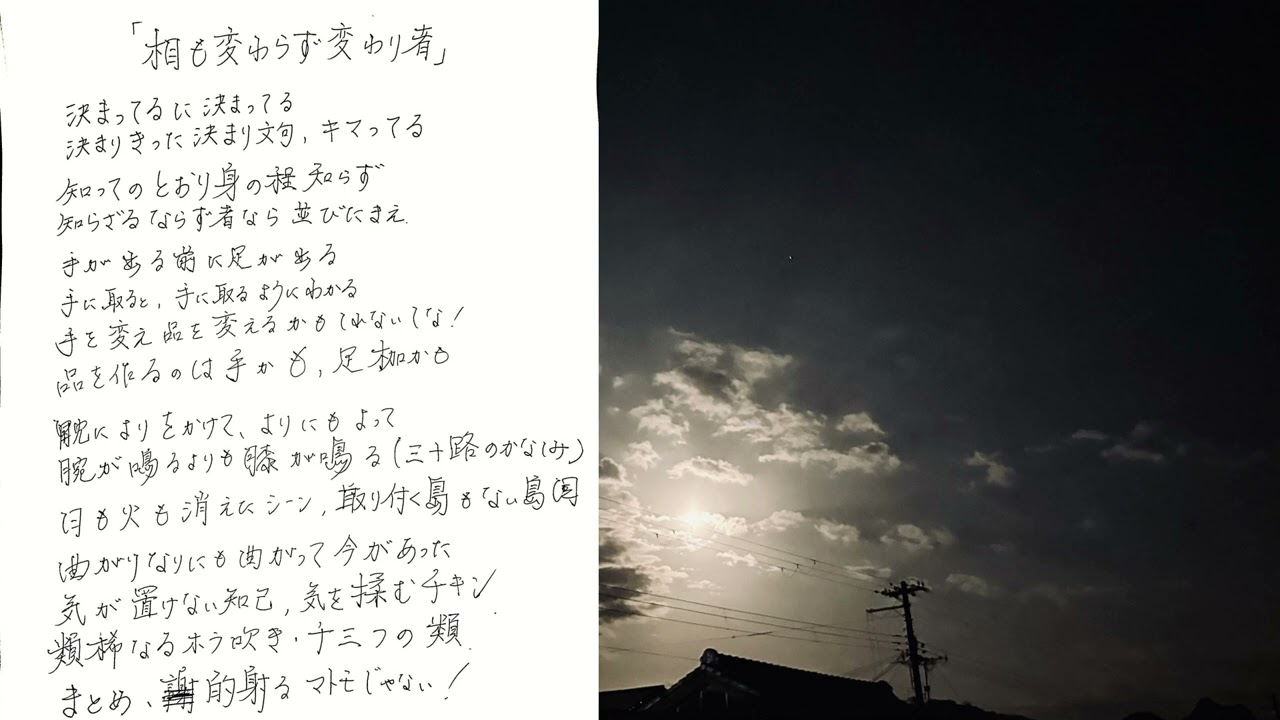 「相も変わらず変わり者」
決まってるに決まってる
決まりきった決まり文句、キマってる
知ってのとおり身の程知らず
知らざるならず者なら並びたまえ
手が出る前に足が出る
手に取ると、手に取るようにわかる
手を変え品を変えるかもしれないしな!
品を作るのは手かも、足枷かも
腕によりをかけて、よりにもよって
腕が鳴るよりも膝が鳴る(三十路のかなしみ)
日も火も消えたシーン、取り付く島もない島国
曲がりなりにも曲がって今があった
気が置けない知己、気を揉むチキン
類稀なるホラ吹き・千三つの類
まとめ、的射るマトモじゃない!